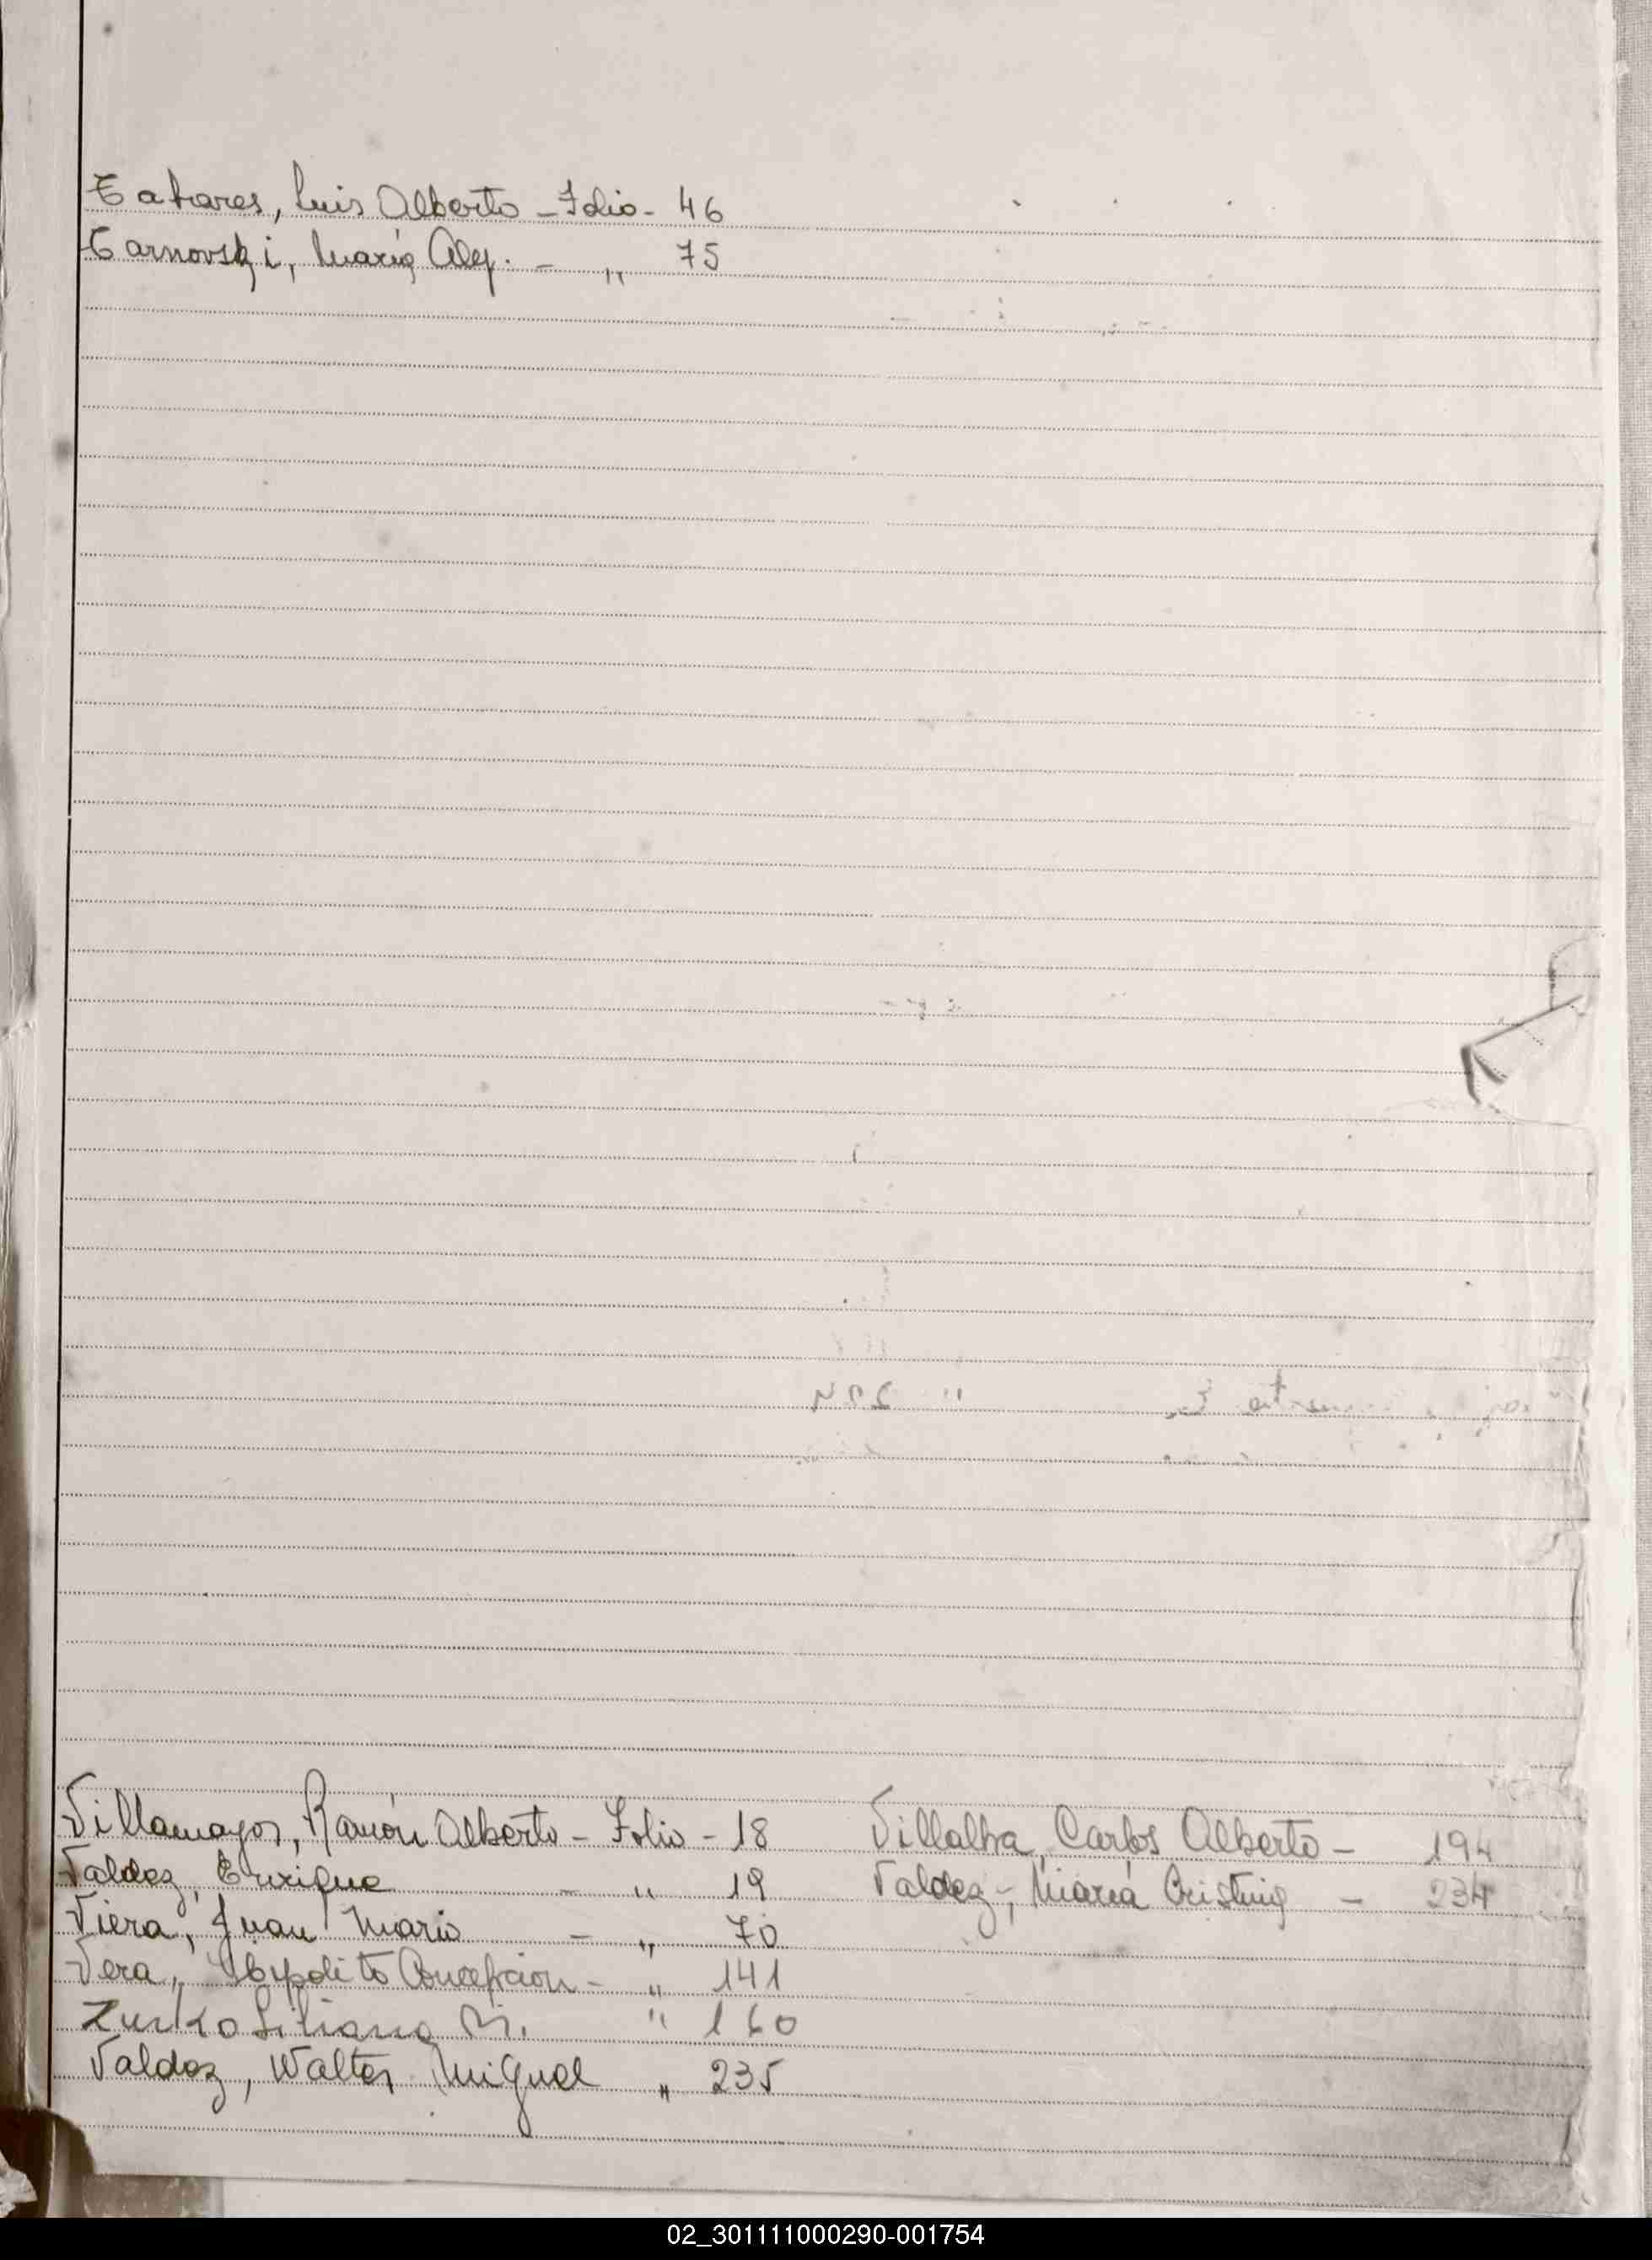 Tabares, Luis Alberto - Folio - 46
Tarnovski, María Alej. - " 75
Villamayor, Ramón Alberto - Folio - 18
Valdez, Enrique - " 19
Viera, Juan Mario - " 70
Vera, Hipolito Concepcion - " 141
Zurko Liliana M. " 160
Valdez, Walter Miguel " 235
Villalba, Carlos Alberto - 194
Valdez, María Cristina - 234
02_301111000290-001754